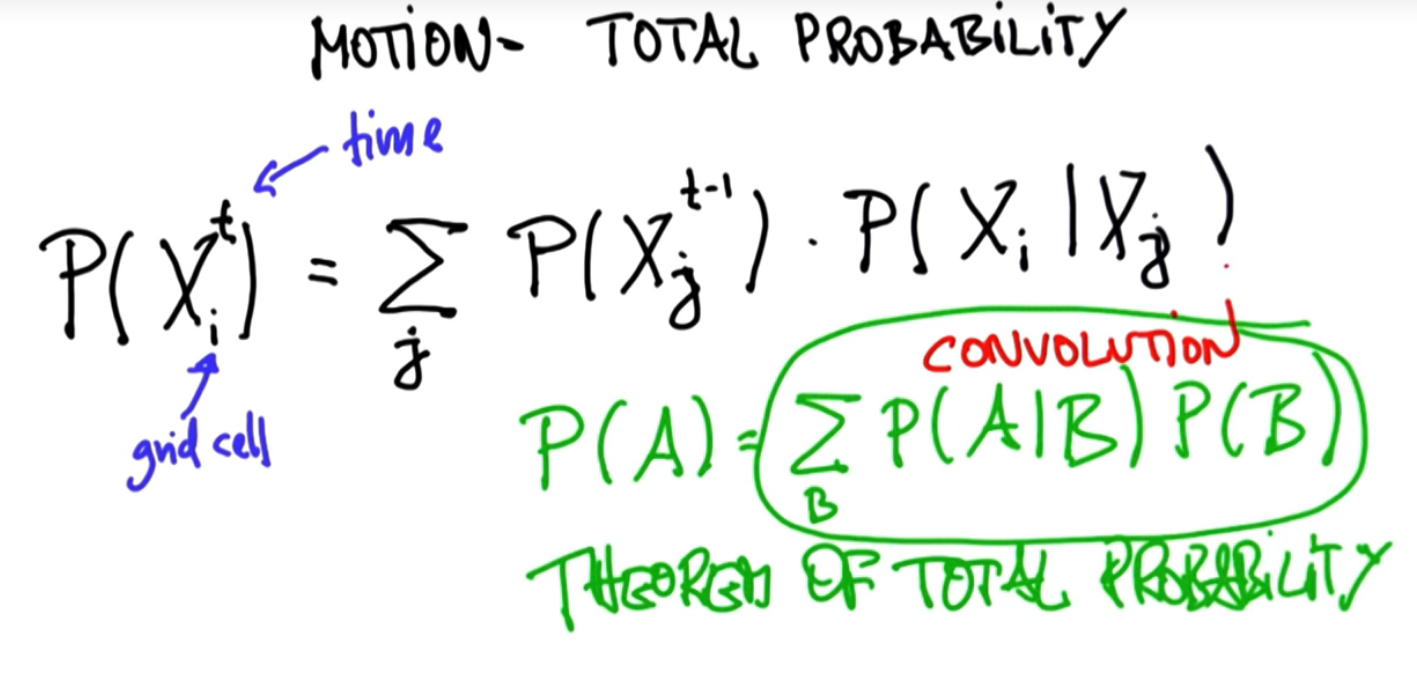 MOTION- TOTAL PROBABILITY
time
P(X_i^t) = Σ_j P(X_j^{t-1}) · P(X_i | X_j)
grid cell
CONVOLUTION
P(A) = Σ_B P(A|B) P(B)
THEOREM OF TOTAL PROBABILITY